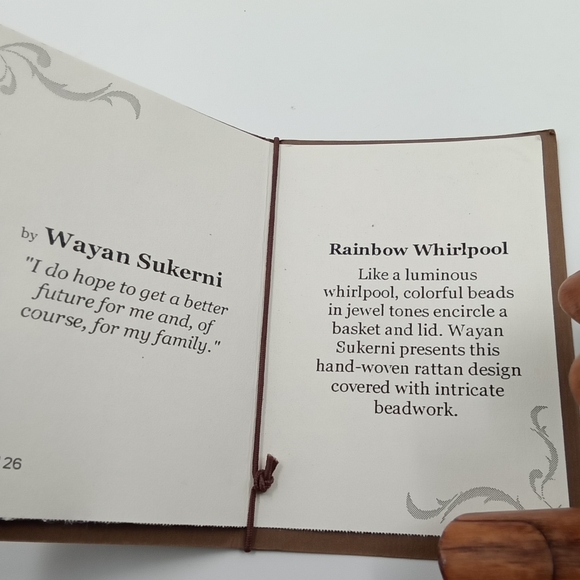 by Wayan Sukerni
"I do hope to get a better
future for me and, of
course, for my family."
26
Rainbow Whirlpool
Like a luminous
whirlpool, colorful beads
in jewel tones encircle a
basket and lid. Wayan
Sukerni presents this
hand-woven rattan design
covered with intricate
beadwork.